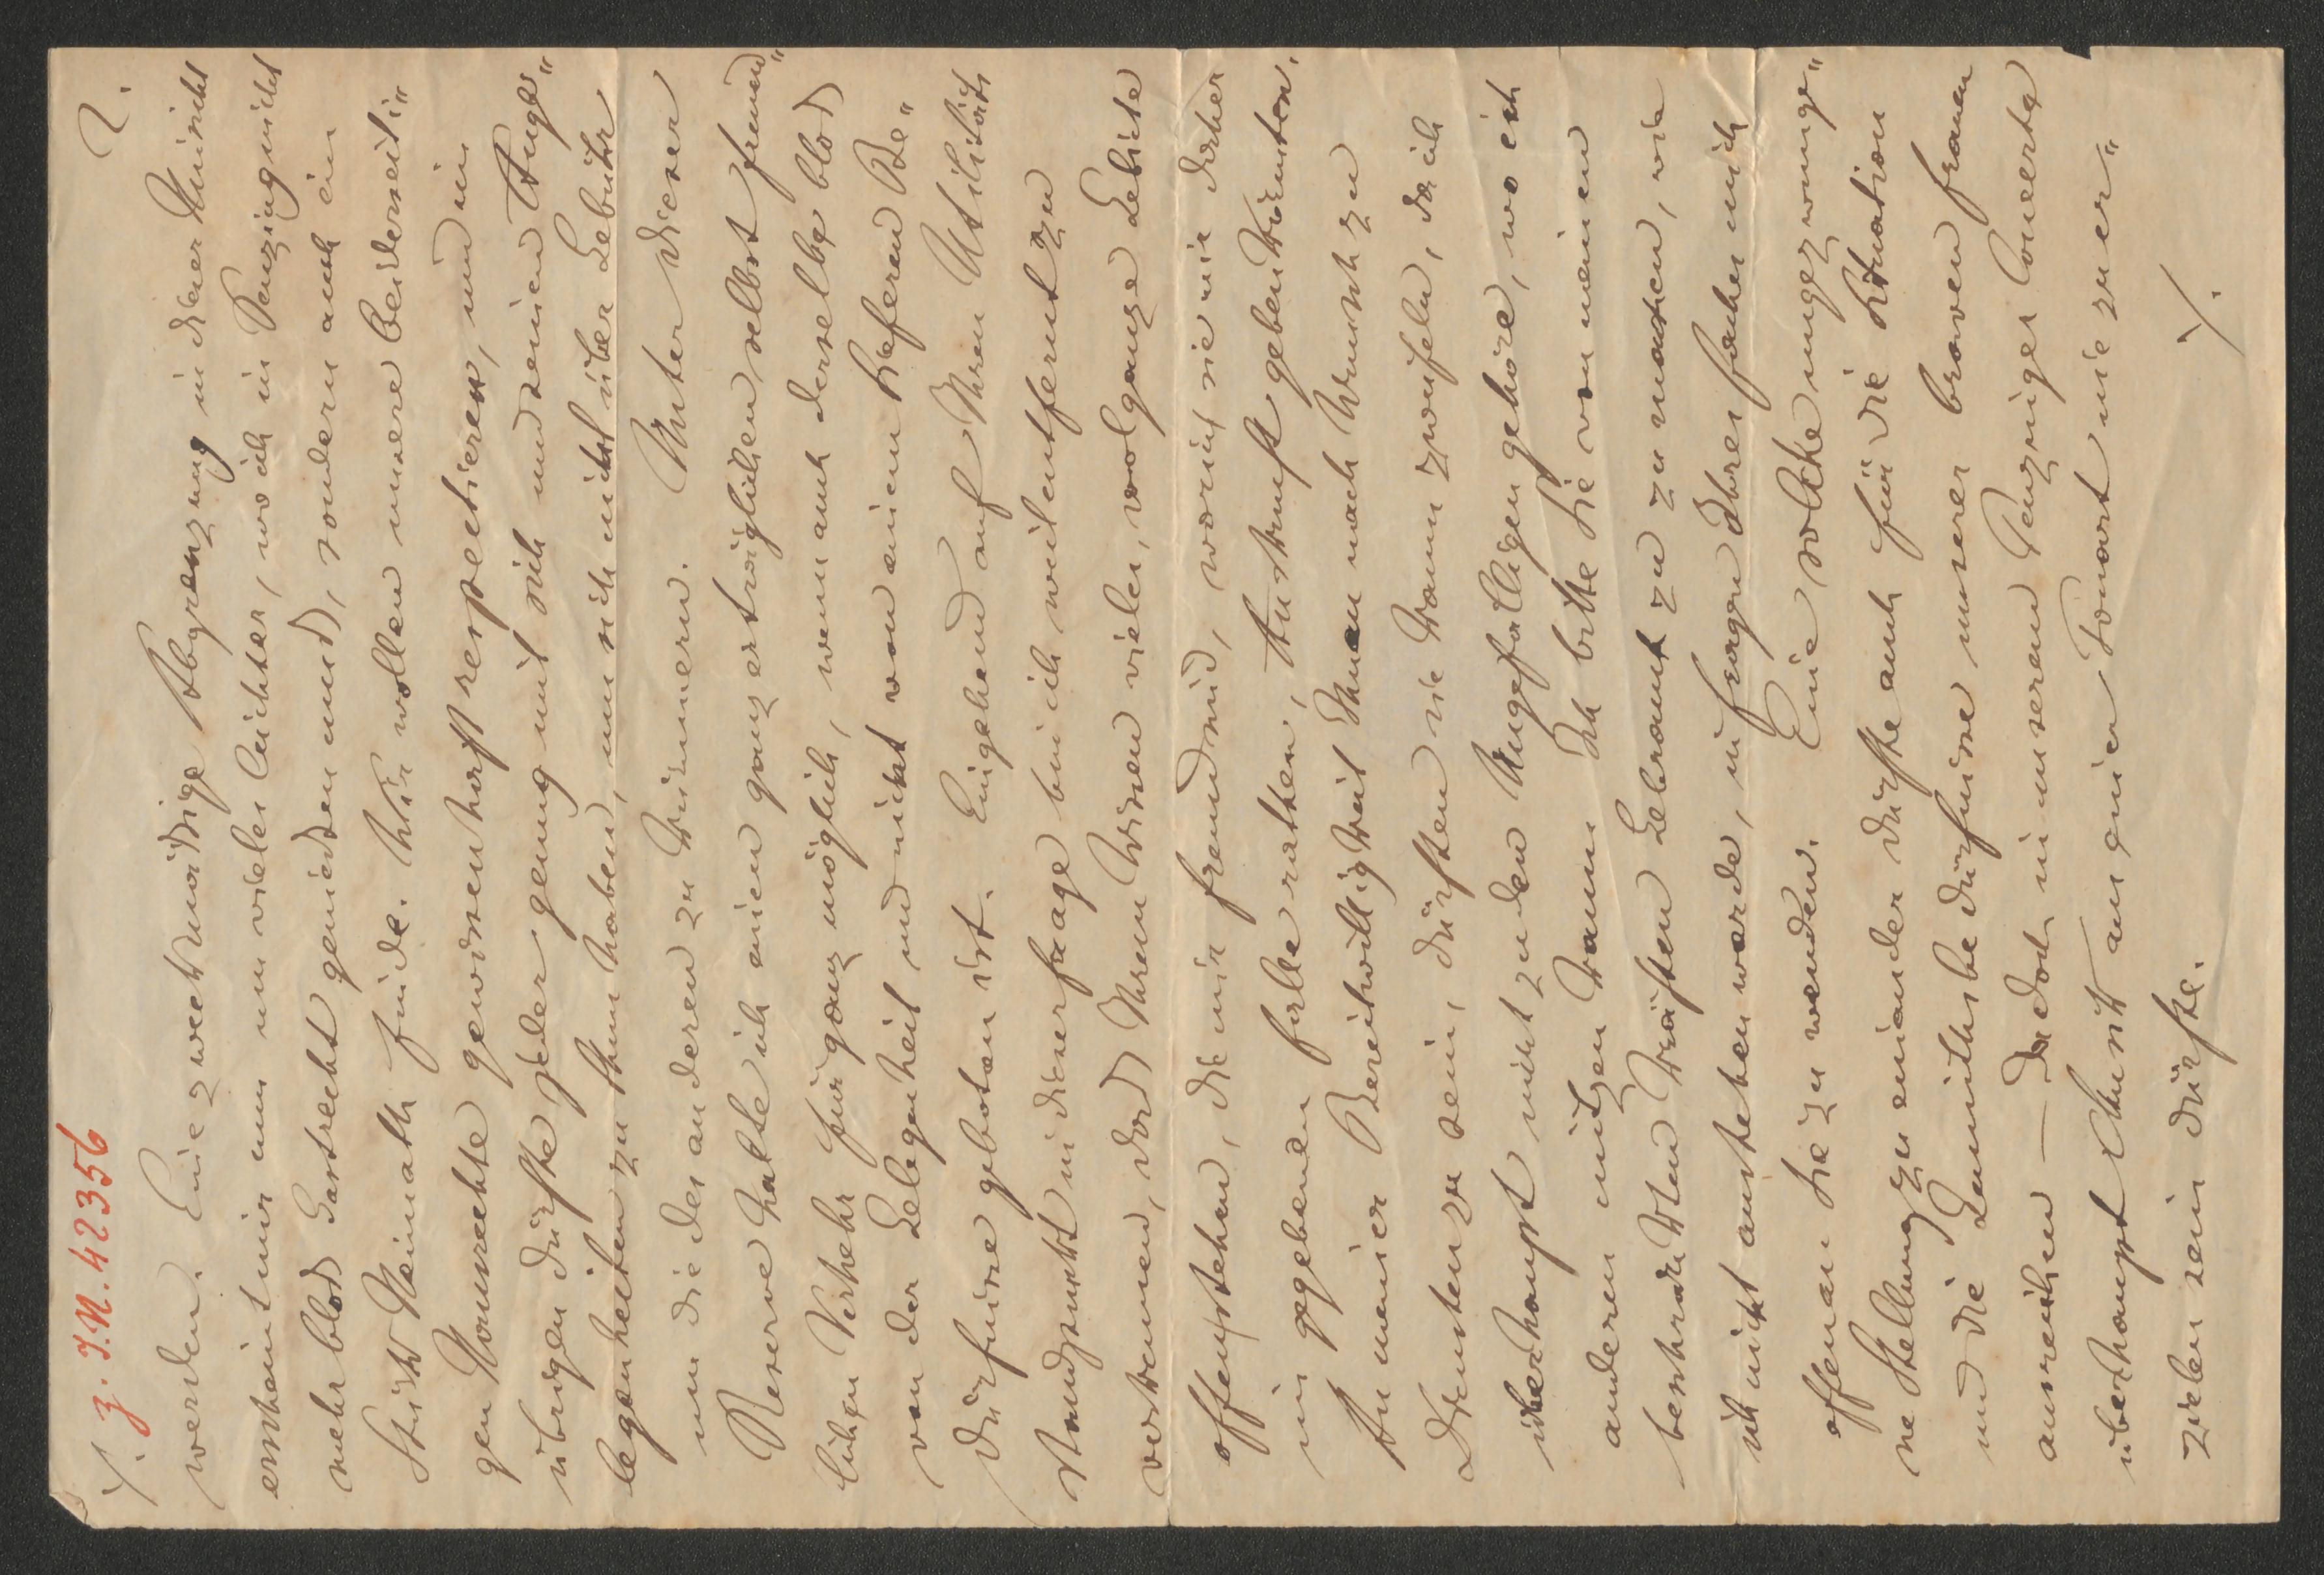 Z. I.N. 42356
%. 2.
werden. Eine zweckmäßige Abgrenzung in dieser Hinsicht
erscheint mir nun um vieles leichter, wo ich in Penzing nicht
mehr blos Gastrecht genießen muß, sondern auch ein
Stück Heimath finde. Wir wollen unsere beiderseiti„
gen Hausrechte gewissenhaft respectieren, und im
übrigen dürfte jeder genug mit sich und seinen Ange„
legenheiten zu thun haben, um sich nicht über Gebühr
um die des anderen zu kümmern. Unter dieser
Reserve halte ich einen ganz erträglichen, selbst freund„
lichen Verkehr für ganz möglich, wenn auch derselbe blos
von der Gelegenheit und nicht von einem tieferen Be„
dürfnisse geboten ist. Eingehend auf Ihren Utilitäts
standpunkt in dieser Frage bin ich weit entfernt zu
verkennen, das Ihrem Wissen vieles, wol ganze Gebiete
offenstehen, die mir fremd sind, worin sie mir daher
in gegebenem Falle rathen, Auskunft geben könnten.
An meiner Bereitwilligkeit Ihnen nach Wunsch zu
Diensten zu sein, dürften sie kaum zweifeln, da ich
überhaupt nicht zu den Ungefälligen gehöre, wo ich
anderen nützen kann. Ich bitte Sie von meinen
beschränkten Kräften Gebrauch zu zu machen, wie
ich nicht anstehen werde, in Fragen Ihres Faches mich
offen an Sie zu wenden. Eine solche ungezwunge„
ne Stellung zu einander dürfte auch für die Situation
und die Gemüthsbedürfnisse unserer braven Frauen
ausreichen — die doch in unserem Penzinger Concerte
überhaupt kaum an eine Tonart wie zu er„
zielen sein dürfte.
%.